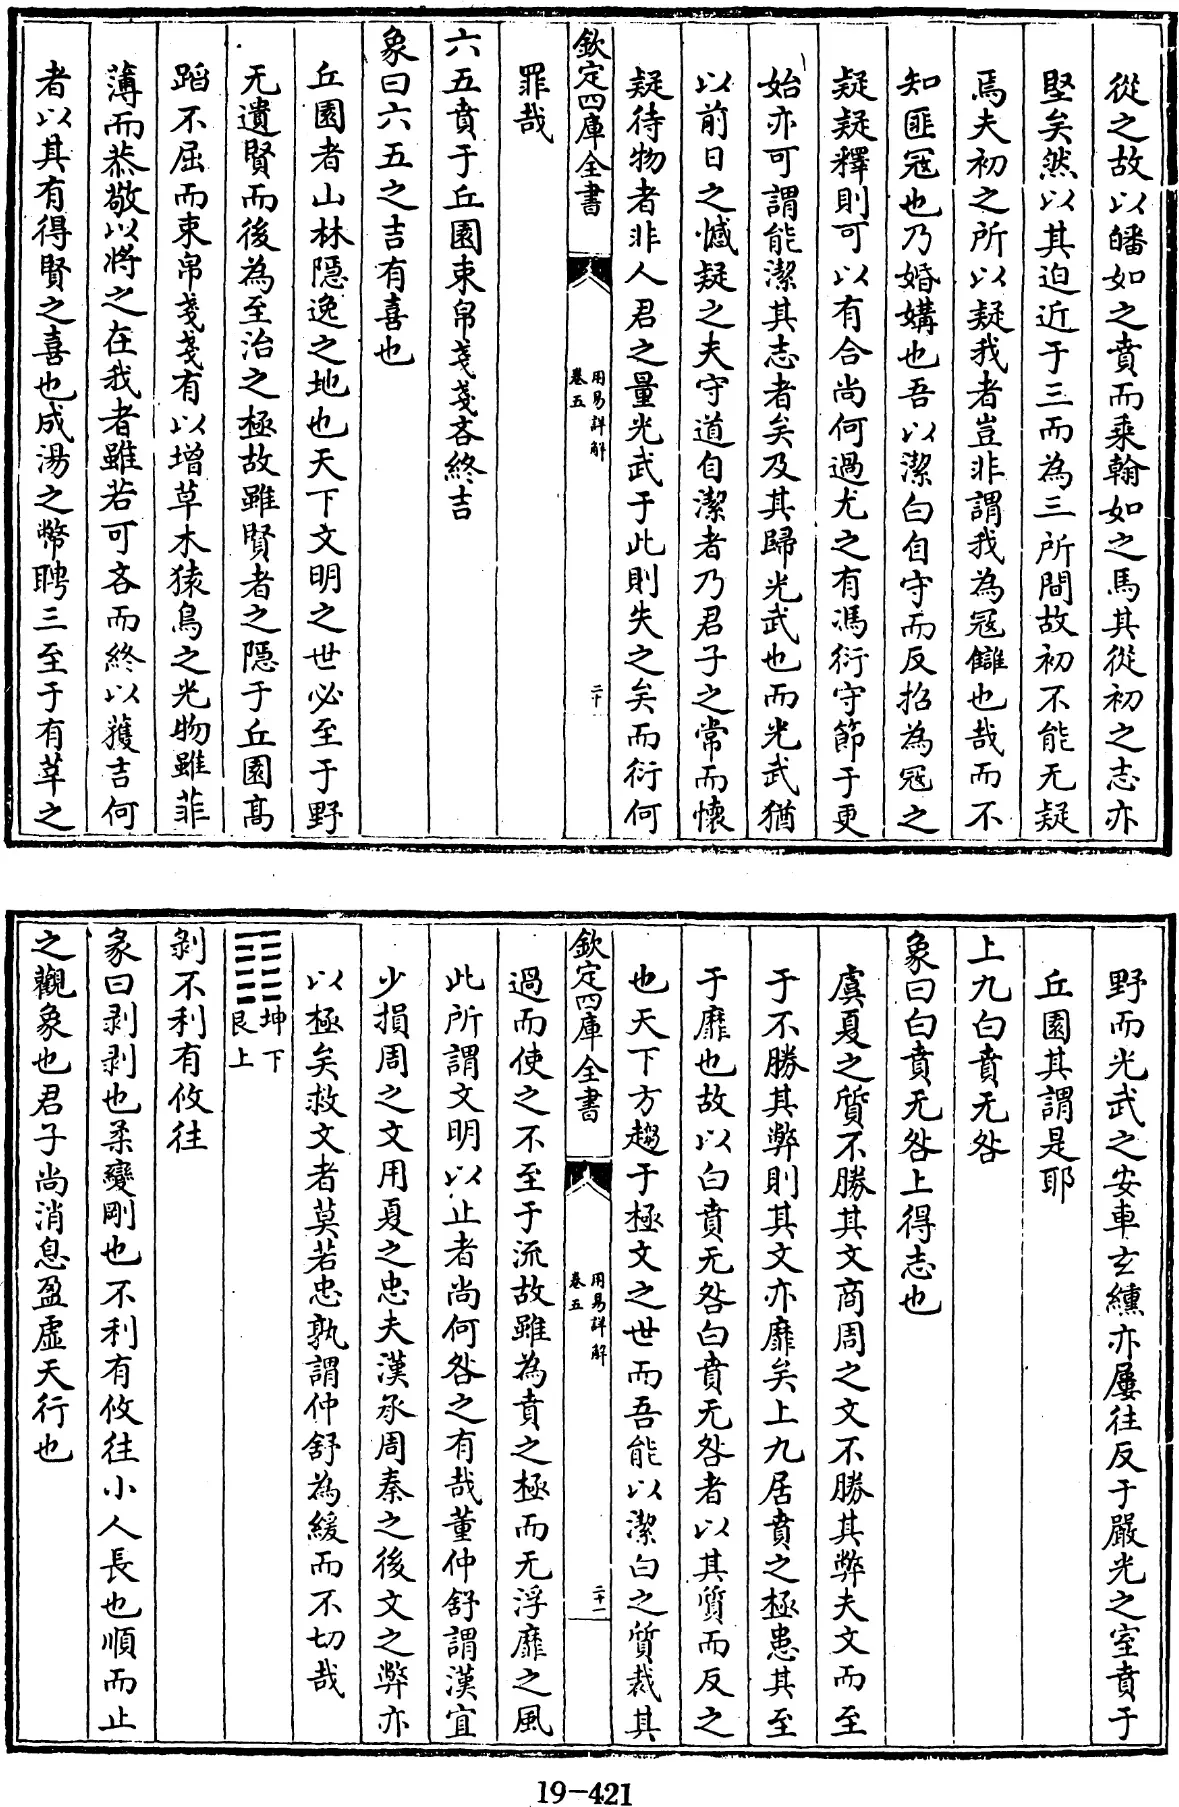 從之故以皤如之賁而乘翰如之馬其從初之志亦
堅矣然以其迫近于三而為三所間故初不能无疑
焉夫初之所以疑我者豈非謂我為冦讎也哉而不
知匪冦也乃婚媾也吾以潔白自守而反招為冦之
疑疑釋則可以有合尚何過尤之有馮衍守節于更
始亦可謂能潔其志者矣及其歸光武也而光武猶
以前日之憾疑之夫守道自潔者乃君子之常而懷
疑待物者非人君之量光武于此則失之矣而衍何
罪哉
欽定四庫全書
用易詳解
卷五
二十
六五賁于丘園束帛戔戔吝終吉
象曰六五之吉有喜也
丘園者山林隱逸之地也天下文明之世必至于野
无遺賢而後為至治之極故雖賢者之隱于丘園高
蹈不屈而束帛戔戔有以增草木猿鳥之光物雖菲
薄而恭敬以将之在我者雖若可吝而終以獲吉何
者以其有得賢之喜也成湯之幣聘三至于有莘之
野而光武之安車玄纁亦屢往反于嚴光之室賁于
丘園其謂是耶
上九白賁无咎
象曰白賁无咎上得志也
虞夏之質不勝其文商周之文不勝其弊夫文而至
于不勝其弊則其文亦靡矣上九居賁之極患其至
于靡也故以白賁无咎白賁无咎者以其質而反之
也天下方趨于極文之世而吾能以潔白之質裁其
欽定四庫全書
用易詳解
卷五
二十一
過而使之不至于流故雖為賁之極而无浮靡之風
此所謂文明以止者尚何咎之有哉董仲舒謂漢宜
少損周之文用夏之忠夫漢承周秦之後文之弊亦
以極矣救文者莫若忠孰謂仲舒為緩而不切哉
坤下
艮上
剝不利有攸往
彖曰剥剥也柔變剛也不利有攸往小人長也順而止
之觀象也君子尚消息盈虛天行也
19-421